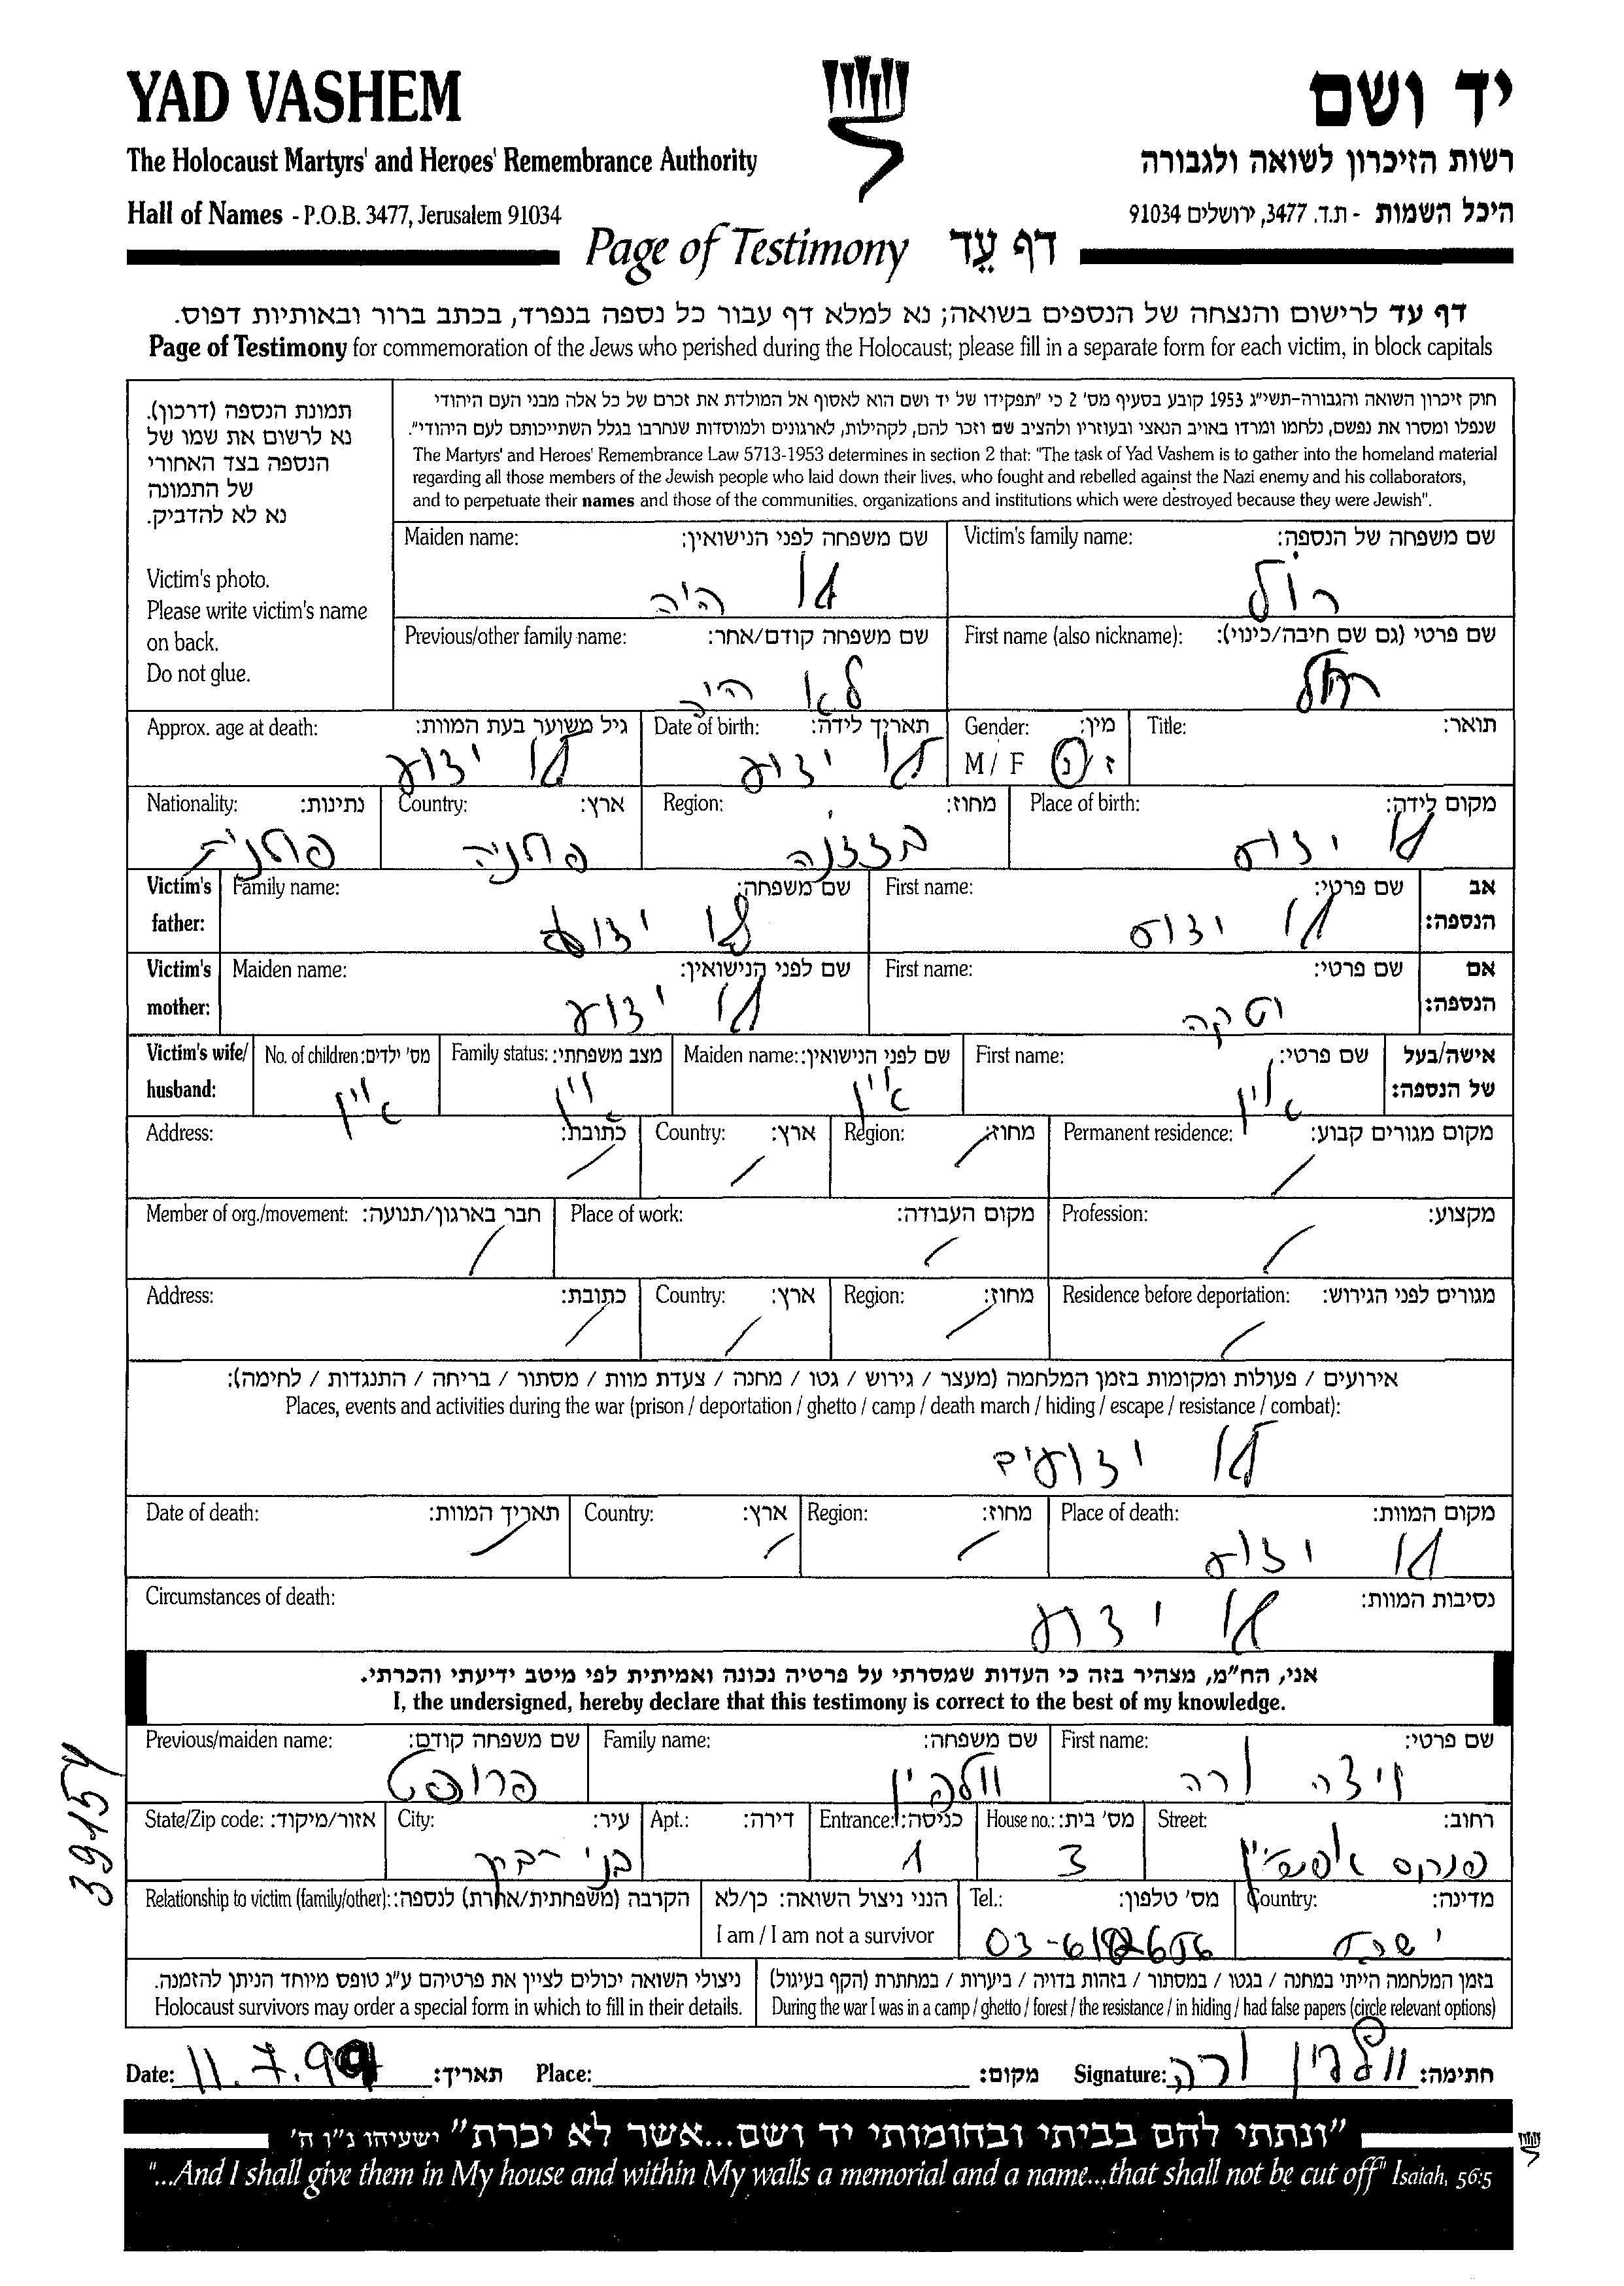 YAD VASHEM
יד ושם
The Holocaust Martyrs' and Heroes' Remembrance Authority
רשות הזיכרון לשואה ולגבורה
Hall of Names - P.O.B. 3477, Jerusalem 91034
היכל השמות - ת.ד. 3477, ירושלים 91034
Page of Testimony דף עֵד
דף עד לרישום והנצחה של הנספים בשואה; נא למלא דף עבור כל נספה בנפרד, בכתב ברור ובאותיות דפוס.
Page of Testimony for commemoration of the Jews who perished during the Holocaust; please fill in a separate form for each victim, in block capitals
תמונת הנספה (דרכון).
נא לרשום את שמו של
הנספה בצד האחורי
של התמונה
נא לא להדביק.
Victim's photo.
Please write victim's name
on back.
Do not glue.
חוק זיכרון השואה והגבורה-תשי"ג 1953 קובע בסעיף מס' 2 כי "תפקידו של יד ושם הוא לאסוף אל המולדת את זכרם של כל אלה מבני העם היהודי
שנפלו ומסרו את נפשם, נלחמו ומרדו באויב הנאצי ובעוזריו ולהציב שם וזכר להם, לקהילות, לארגונים ולמוסדות שנחרבו בגלל השתייכותם לעם היהודי".
The Martyrs' and Heroes' Remembrance Law 5713-1953 determines in section 2 that: "The task of Yad Vashem is to gather into the homeland material
regarding all those members of the Jewish people who laid down their lives, who fought and rebelled against the Nazi enemy and his collaborators,
and to perpetuate their names and those of the communities, organizations and institutions which were destroyed because they were Jewish".
Victim's family name: שם משפחה של הנספה: Maiden name: שם משפחה לפני הנישואין:
רול לא היה
First name (also nickname): שם פרטי (גם שם חיבה/כינוי): Previous/other family name: שם משפחה קודם/אחר:
רחל לא היה
Title: תואר: Gender: מין: Date of birth: תאריך לידה: Approx. age at death: גיל משוער בעת המוות:
M / F ז / נ לא ידוע לא ידוע
Place of birth: מקום לידה: Region: מחוז: Country: ארץ: Nationality: נתינות:
לא ידוע
Victim's father: אב הנספה: First name: שם פרטי: Family name: שם משפחה:
לא ידוע לא ידוע
Victim's mother: אם הנספה: First name: שם פרטי: Maiden name: שם לפני הנישואין:
לא ידוע
Victim's wife/ husband: אישה/בעל של הנספה: First name: שם פרטי: Maiden name: שם לפני הנישואין: Family status: מצב משפחתי: No. of children: מס' ילדים:
אין אין אין אין
Permanent residence: מקום מגורים קבוע: Region: מחוז: Country: ארץ: Address: כתובת:
Profession: מקצוע: Place of work: מקום העבודה: Member of org./movement: חבר בארגון/תנועה:
Residence before deportation: מגורים לפני הגירוש: Region: מחוז: Country: ארץ: Address: כתובת:
אירועים / פעולות ומקומות בזמן המלחמה (מעצר / גירוש / גטו / מחנה / צעדת מוות / מסתור / בריחה / התנגדות / לחימה):
Places, events and activities during the war (prison / deportation / ghetto / camp / death march / hiding / escape / resistance / combat):
לא ידועים
Place of death: מקום המוות: Region: מחוז: Country: ארץ: Date of death: תאריך המוות:
לא ידוע
Circumstances of death: נסיבות המוות:
לא ידוע
אני, הח"מ, מצהיר בזה כי העדות שמסרתי על פרטיה נכונה ואמיתית לפי מיטב ידיעתי והכרתי.
I, the undersigned, hereby declare that this testimony is correct to the best of my knowledge.
First name: שם פרטי: Family name: שם משפחה: Previous/maiden name: שם משפחה קודם:
ורה וולפין
39154
Street: רחוב: House no.: מס' בית: Entrance: כניסה: Apt.: דירה: City: עיר: State/Zip code: אזור/מיקוד:
פנקס 3 1 בני ברק
Country: מדינה: Tel.: מס' טלפון: הנני ניצול השואה: כן/לא Relationship to victim (family/other): הקרבה (משפחתית/אחרת) לנספה:
I am / I am not a survivor
ישראל
בזמן המלחמה הייתי במחנה / בגטו / במסתור / בזהות בדויה / ביערות / במחתרת (הקף בעיגול)
During the war I was in a camp / ghetto / forest / the resistance / in hiding / had false papers (circle relevant options)
ניצולי השואה יכולים לציין את פרטיהם ע"ג טופס מיוחד הניתן להזמנה.
Holocaust survivors may order a special form in which to fill in their details.
Date: 11.7.99 תאריך: Place: מקום: Signature: וולפין ורה חתימה:
"ונתתי להם בביתי ובחומותי יד ושם...אשר לא יכרת" ישעיהו נ"ו ה'
"...And I shall give them in My house and within My walls a memorial and a name...that shall not be cut off" Isaiah, 56:5